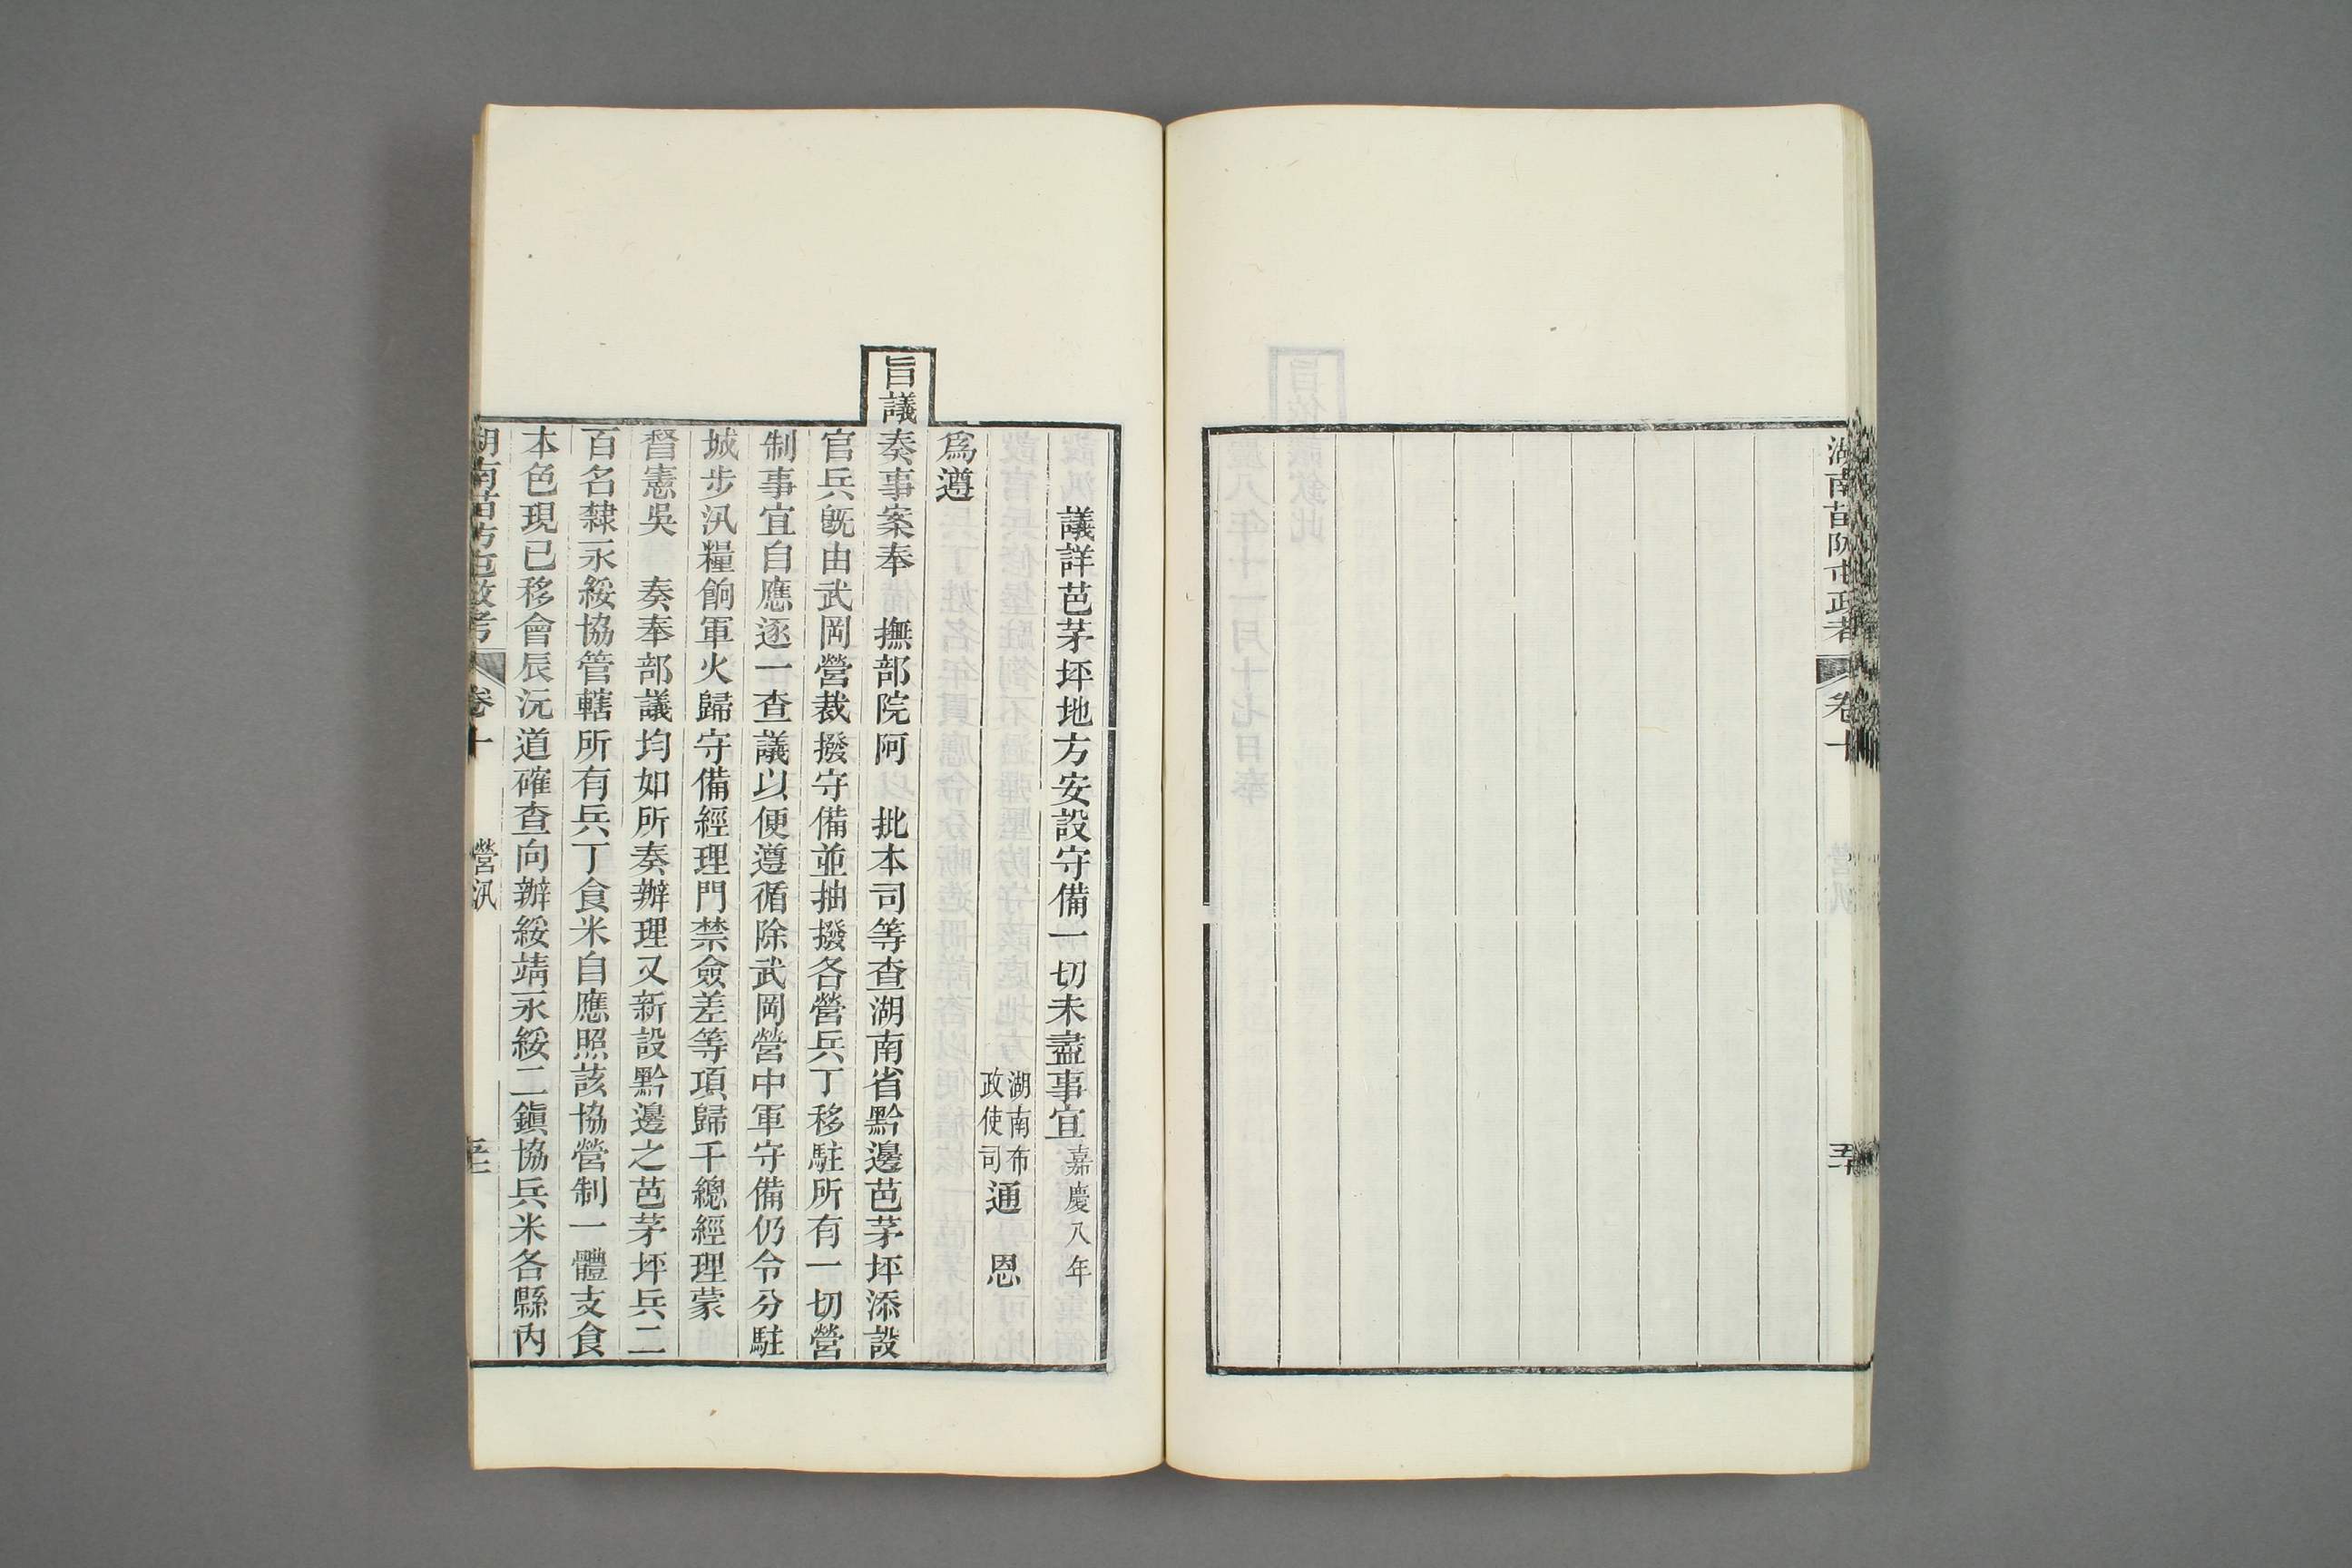 湖南苗防屯政考 卷十 五十
議詳芭茅坪地方安設守備一切未盡事宜嘉慶八年
湖南布政使司通 恩
爲遵
旨議奏事案奉 撫部院阿 批本司等查湖南省黔邊芭茅坪添設
官兵旣由武岡營裁撥守備並抽撥各營兵丁移駐所有一切營
制事宜自應逐一查議以便遵循除武岡營中軍守備仍令分駐
城步汛糧餉軍火歸守備經理門禁僉差等項歸千總經理蒙
督憲吳 奏奉部議均如所奏辦理又新設黔邊之芭茅坪兵二
百名隸永綏協管轄所有兵丁食米自應照該協營制一體支食
本色現已移會辰沅道確查向辦綏靖永綏二鎭協兵米各縣內
湖南苗防屯政考 卷十 營汛